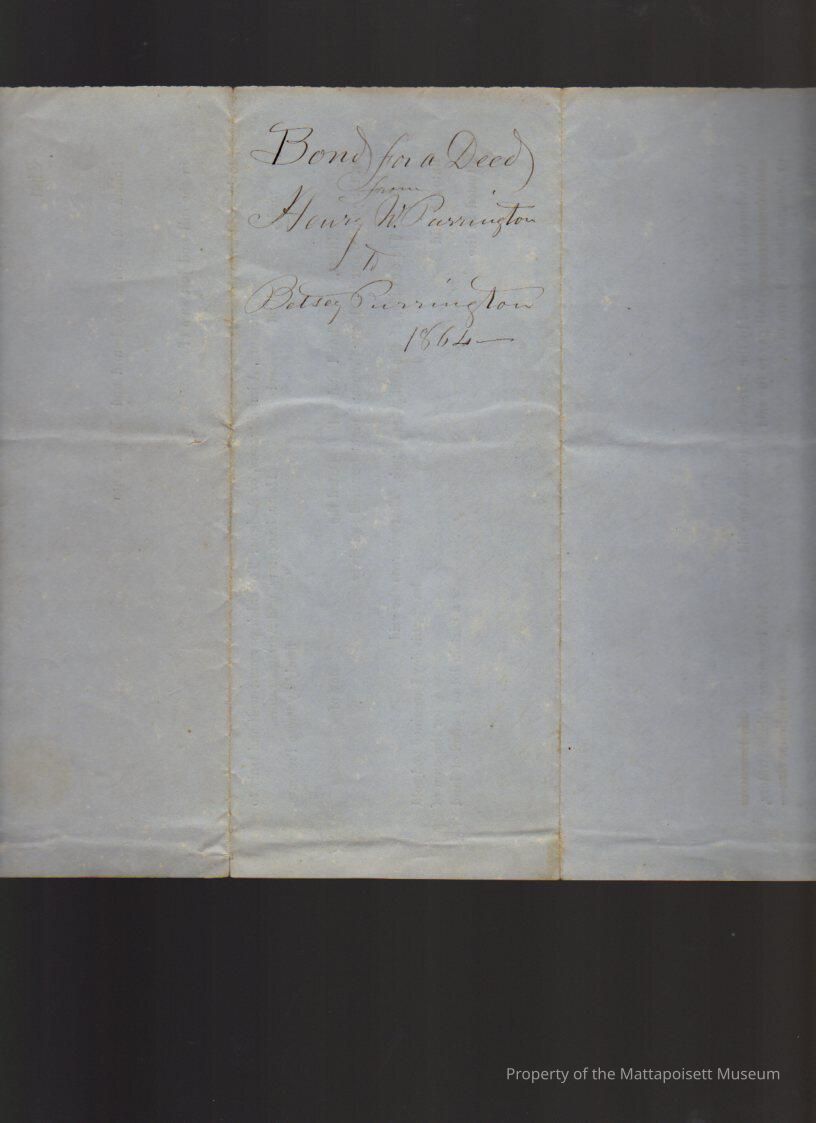 Bond for a Deed
from
Henry W. Purrington
To
Betsey Purrington
1864
Property of the Mattapoisett Museum